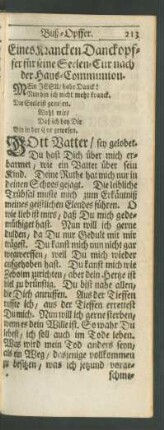 Buß-Opffer. 213
Eines Krancken Danckopf-
fer für seine Seelen-Cur nach
der Haus-Communion.
MEin JESU, habe Danck!
Nun bin ich nicht mehr kranck.
Die Seele ist genesen.
Wohl mir/
Daß ich bey Dir
Bin in der Cur gewesen.
GOtt Vatter/ sey gelobet.
Du hast Dich über mich er-
barmet, wie ein Vatter über sein
Kind. Deine Ruthe hat mich nur in
deinen Schoos gejagt. Die leibliche
Trübsal muste mich zum Erkäntniß
meines geistlichen Elendes führen. O
wie lieb ist mirs, daß Du mich gede-
müthiget hast. Nun will ich gerne
dulden, da Du mit Gedult mit mir
trägest. Du kanst mich nun nicht gar
verwerffen, weil Du mich wieder
aufgehoben hast. Du kanst mich wie
Gehenn zurichten, aber dein Hertze ist
viel zu brünstig. Du bist nahe allen,
die Dich anruffen. Aus der Tieffen
ruffte ich, aus der Tieffen errettest
Du mich. Nun will ich gerne sterben,
wenn es dein Wille ist. So wahr Du
lebest, ich soll auch im Tode leben.
Was wird mein Tod anders seyn,
als ein Weg/ dasjenige vollkommen
zu besitzen, was ich jetzund vorge-
schmä-